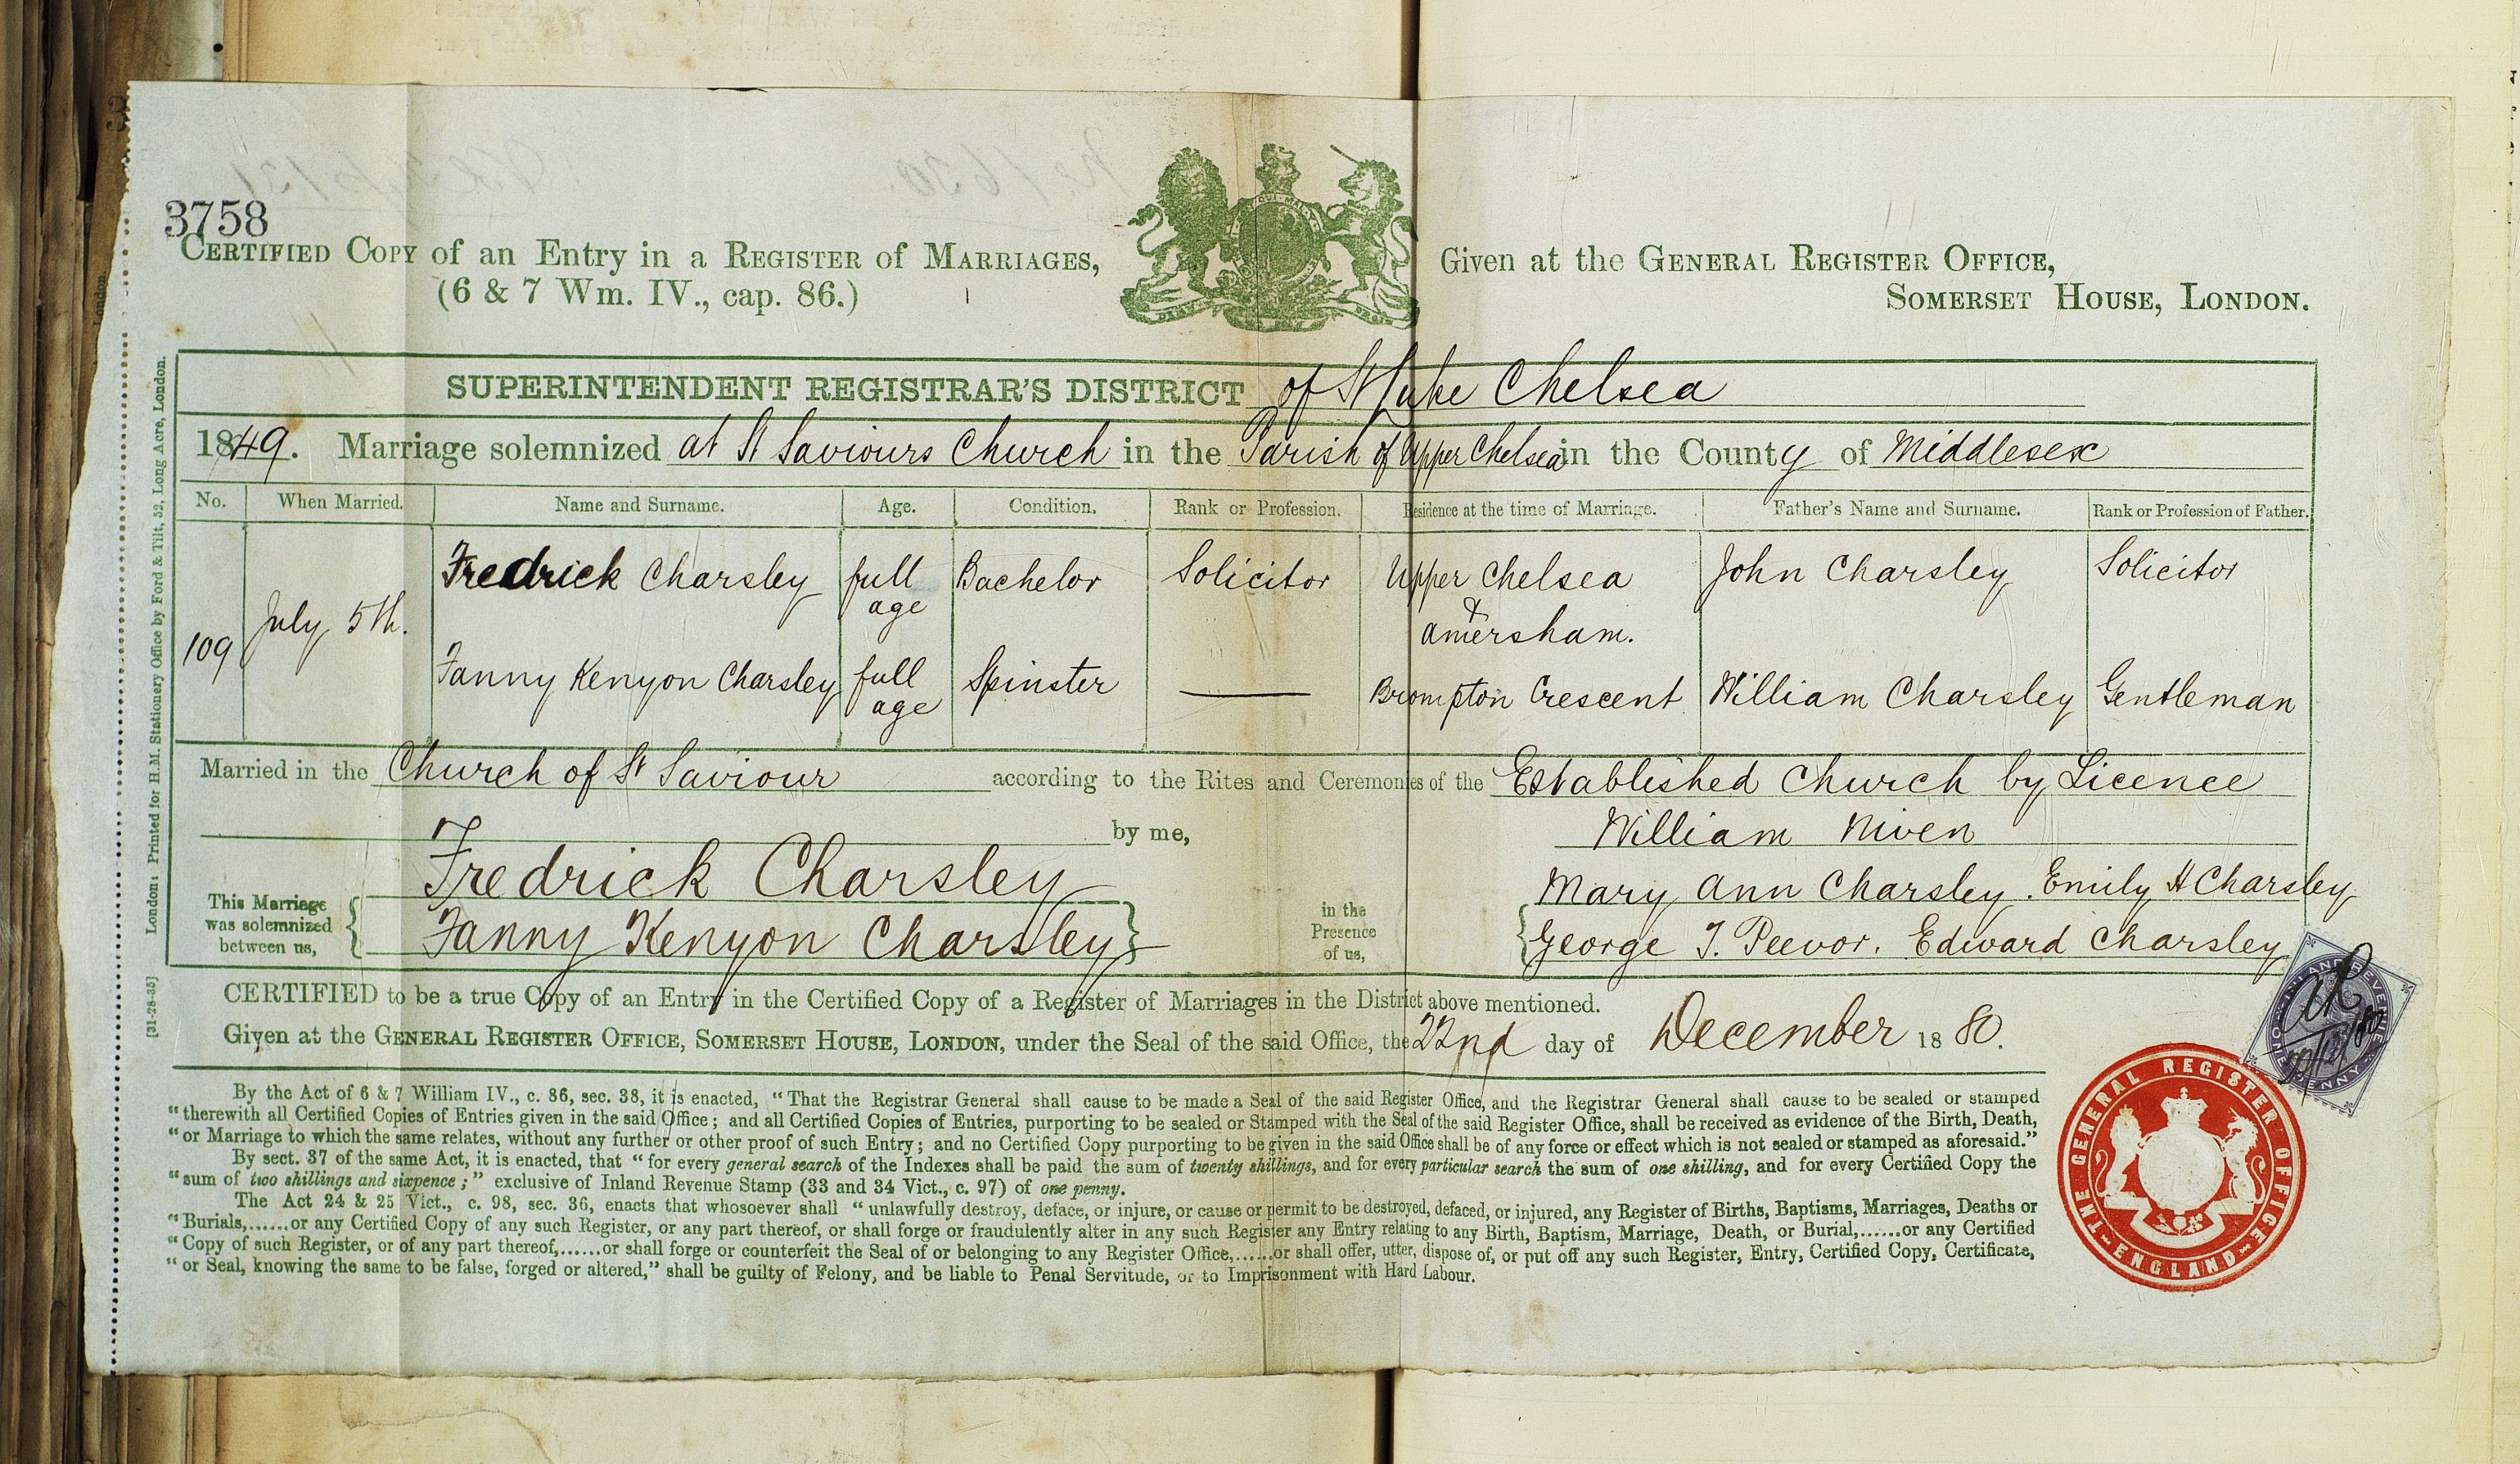 3758
CERTIFIED COPY of an Entry in a REGISTER of MARRIAGES,
(6 & 7 Wm. IV., cap. 86.)
Given at the GENERAL REGISTER OFFICE,
SOMERSET HOUSE, LONDON.
SUPERINTENDENT REGISTRAR'S DISTRICT of St Luke Chelsea
1849. Marriage solemnized at St Saviours Church in the Parish of Upper Chelsea in the County of Middlesex
No. When Married. Name and Surname. Age. Condition. Rank or Profession. Residence at the time of Marriage. Father's Name and Surname. Rank or Profession of Father.
109 July 5th.
Fredrick Charsley full age Bachelor Solicitor Upper Chelsea & Amersham. John Charsley Solicitor
Fanny Kenyon Charsley full age Spinster — Brompton Crescent William Charsley Gentleman
Married in the Church of St Saviour according to the Rites and Ceremonies of the Established Church by Licence
by me, William Niven
This Marriage was solemnized between us,
Fredrick Charsley
Fanny Kenyon Charsley
in the Presence of us,
Mary Ann Charsley. Emily H Charsley
George T. Peevor. Edward Charsley
CERTIFIED to be a true Copy of an Entry in the Certified Copy of a Register of Marriages in the District above mentioned.
Given at the GENERAL REGISTER OFFICE, SOMERSET HOUSE, LONDON, under the Seal of the said Office, the 22nd day of December 1880.
By the Act of 6 & 7 William IV., c. 86, sec. 38, it is enacted, "That the Registrar General shall cause to be made a Seal of the said Register Office, and the Registrar General shall cause to be sealed or stamped
"therewith all Certified Copies of Entries given in the said Office; and all Certified Copies of Entries, purporting to be sealed or Stamped with the Seal of the said Register Office, shall be received as evidence of the Birth, Death,
"or Marriage to which the same relates, without any further or other proof of such Entry; and no Certified Copy purporting to be given in the said Office shall be of any force or effect which is not sealed or stamped as aforesaid."
By sect. 37 of the same Act, it is enacted, that "for every general search of the Indexes shall be paid the sum of twenty shillings, and for every particular search the sum of one shilling, and for every Certified Copy the
"sum of two shillings and sixpence;" exclusive of Inland Revenue Stamp (33 and 34 Vict., c. 97) of one penny.
The Act 24 & 25 Vict., c. 98, sec. 36, enacts that whosoever shall "unlawfully destroy, deface, or injure, or cause or permit to be destroyed, defaced, or injured, any Register of Births, Baptisms, Marriages, Deaths or
"Burials,......or any Certified Copy of any such Register, or any part thereof, or shall forge or fraudulently alter in any such Register any Entry relating to any Birth, Baptism, Marriage, Death, or Burial,......or any Certified
"Copy of such Register, or of any part thereof,......or shall forge or counterfeit the Seal of or belonging to any Register Office,......or shall offer, utter, dispose of, or put off any such Register, Entry, Certified Copy, Certificate,
"or Seal, knowing the same to be false, forged or altered," shall be guilty of Felony, and be liable to Penal Servitude, or to Imprisonment with Hard Labour.
THE GENERAL REGISTER OFFICE
ENGLAND
INLAND REVENUE
ONE PENNY
[31-28-35] London: Printed for H.M. Stationery Office by Ford & Tilt, 52, Long Acre, London.
London